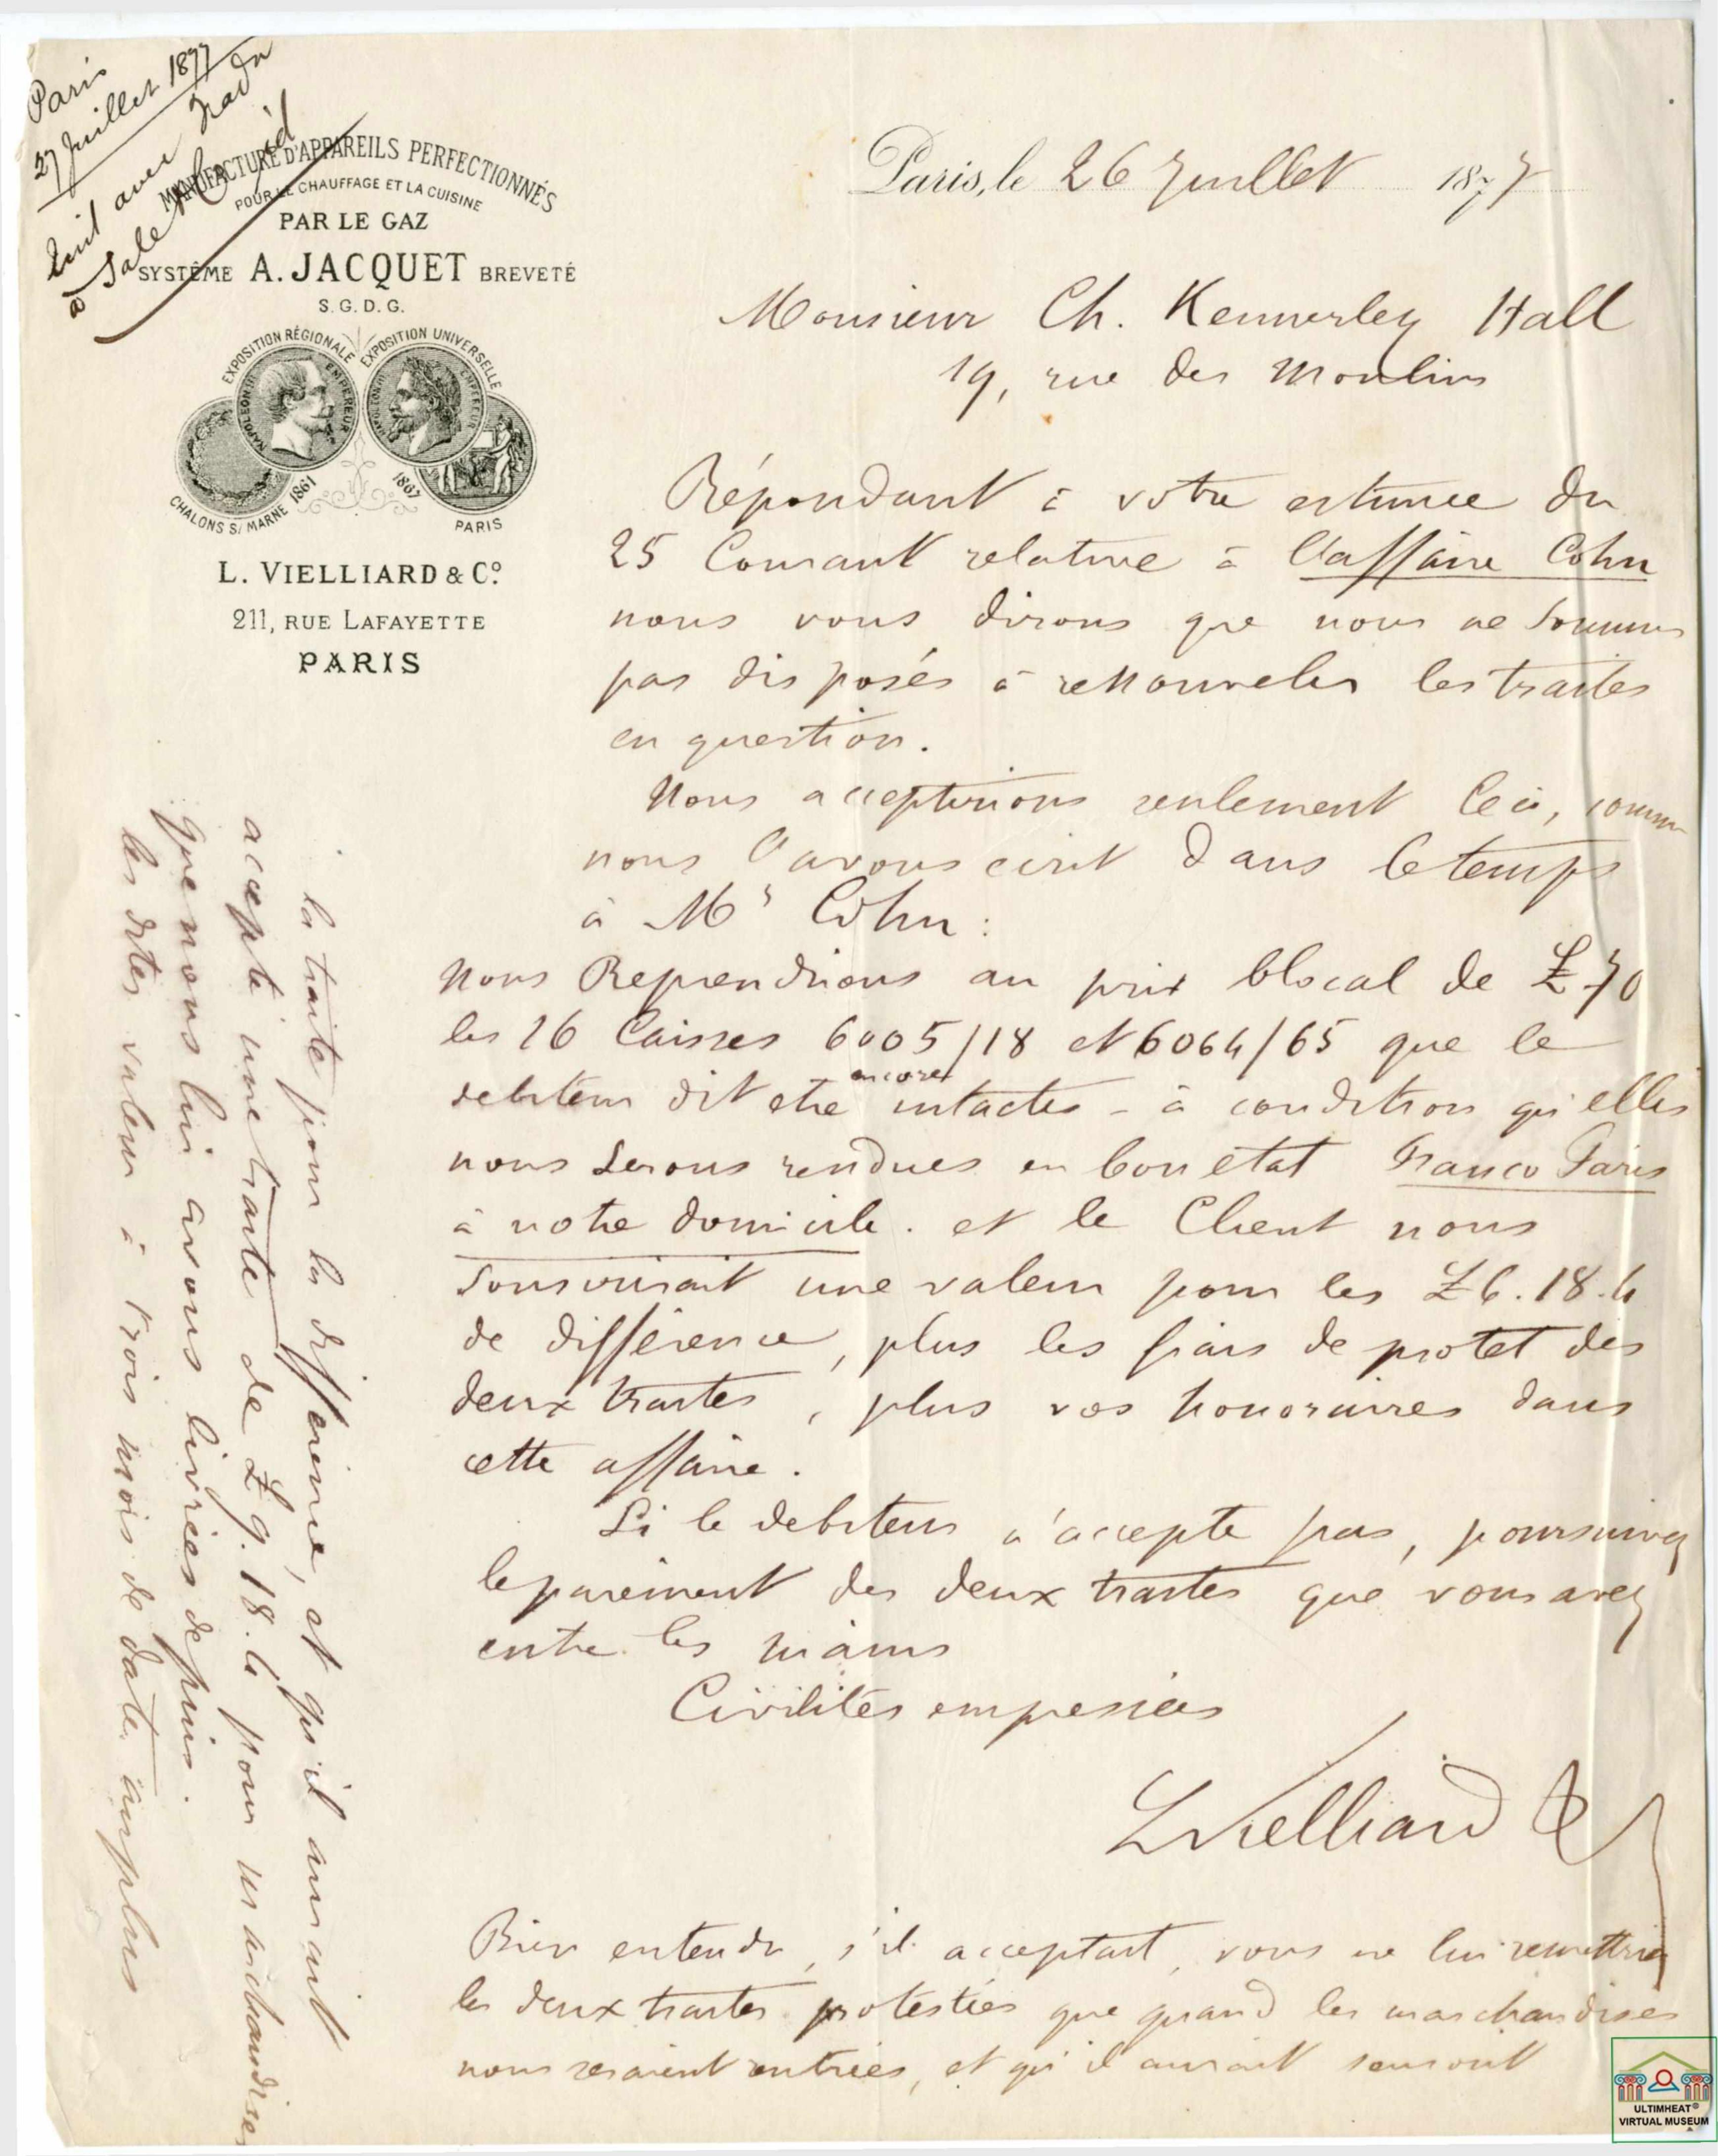 Paris
27 Juillet 1877
avec
à Sale
MANUFACTURE D'APPAREILS PERFECTIONNÉS
POUR LE CHAUFFAGE ET LA CUISINE
PAR LE GAZ
SYSTÊME A. JACQUET BREVETÉ
S. G. D. G.
EXPOSITION RÉGIONALE EXPOSITION UNIVERSELLE
NAPOLEON III EMPEREUR NAPOLEON III EMPEREUR
CHALONS S/ MARNE 1861 1867 PARIS
L. VIELLIARD & Cº
211, RUE LAFAYETTE
PARIS
Paris, le 26 Juillet 1877
Monsieur Ch. Kennerley Hall
19, rue des Moulins
Répondant à votre estimée du
25 Courant relative à l'affaire Cohn
nous vous dirons que nous ne sommes
pas disposés à renouveler les traites
en question.
Nous accepterions seulement ceci, comme
nous l'avons écrit dans le temps
à Mr Cohn :
Nous Reprendrions au prix blocal de £ 70
les 16 Caisses 6005/18 et 6064/65 que le
debiteur dit etre encore intactes - à condition qu'elles
nous serons rendues en bon etat Franco Paris
à notre domicile. et le Client nous
souscrirait une valeur pour les £ 6.18.4
de différence, plus les frais de protet des
deux traites, plus vos honoraires dans
cette affaire.
Si le debiteur n'accepte pas, poursuivez
le paiement des deux traites que vous avez
entre les mains
Civilités empressées
LVielliard & C
Bien entendu, s'il acceptait, vous ne lui remettriez
les deux traites protestées que quand les marchandises
nous seraient entrées, et qu'il aurait souscrit
la traite pour la différence, et qu'il aurait
accepté une traite de £ 9.18.4 pour marchandises
que nous lui avons livrées depuis.
les dites valeurs à trois mois de date au plus